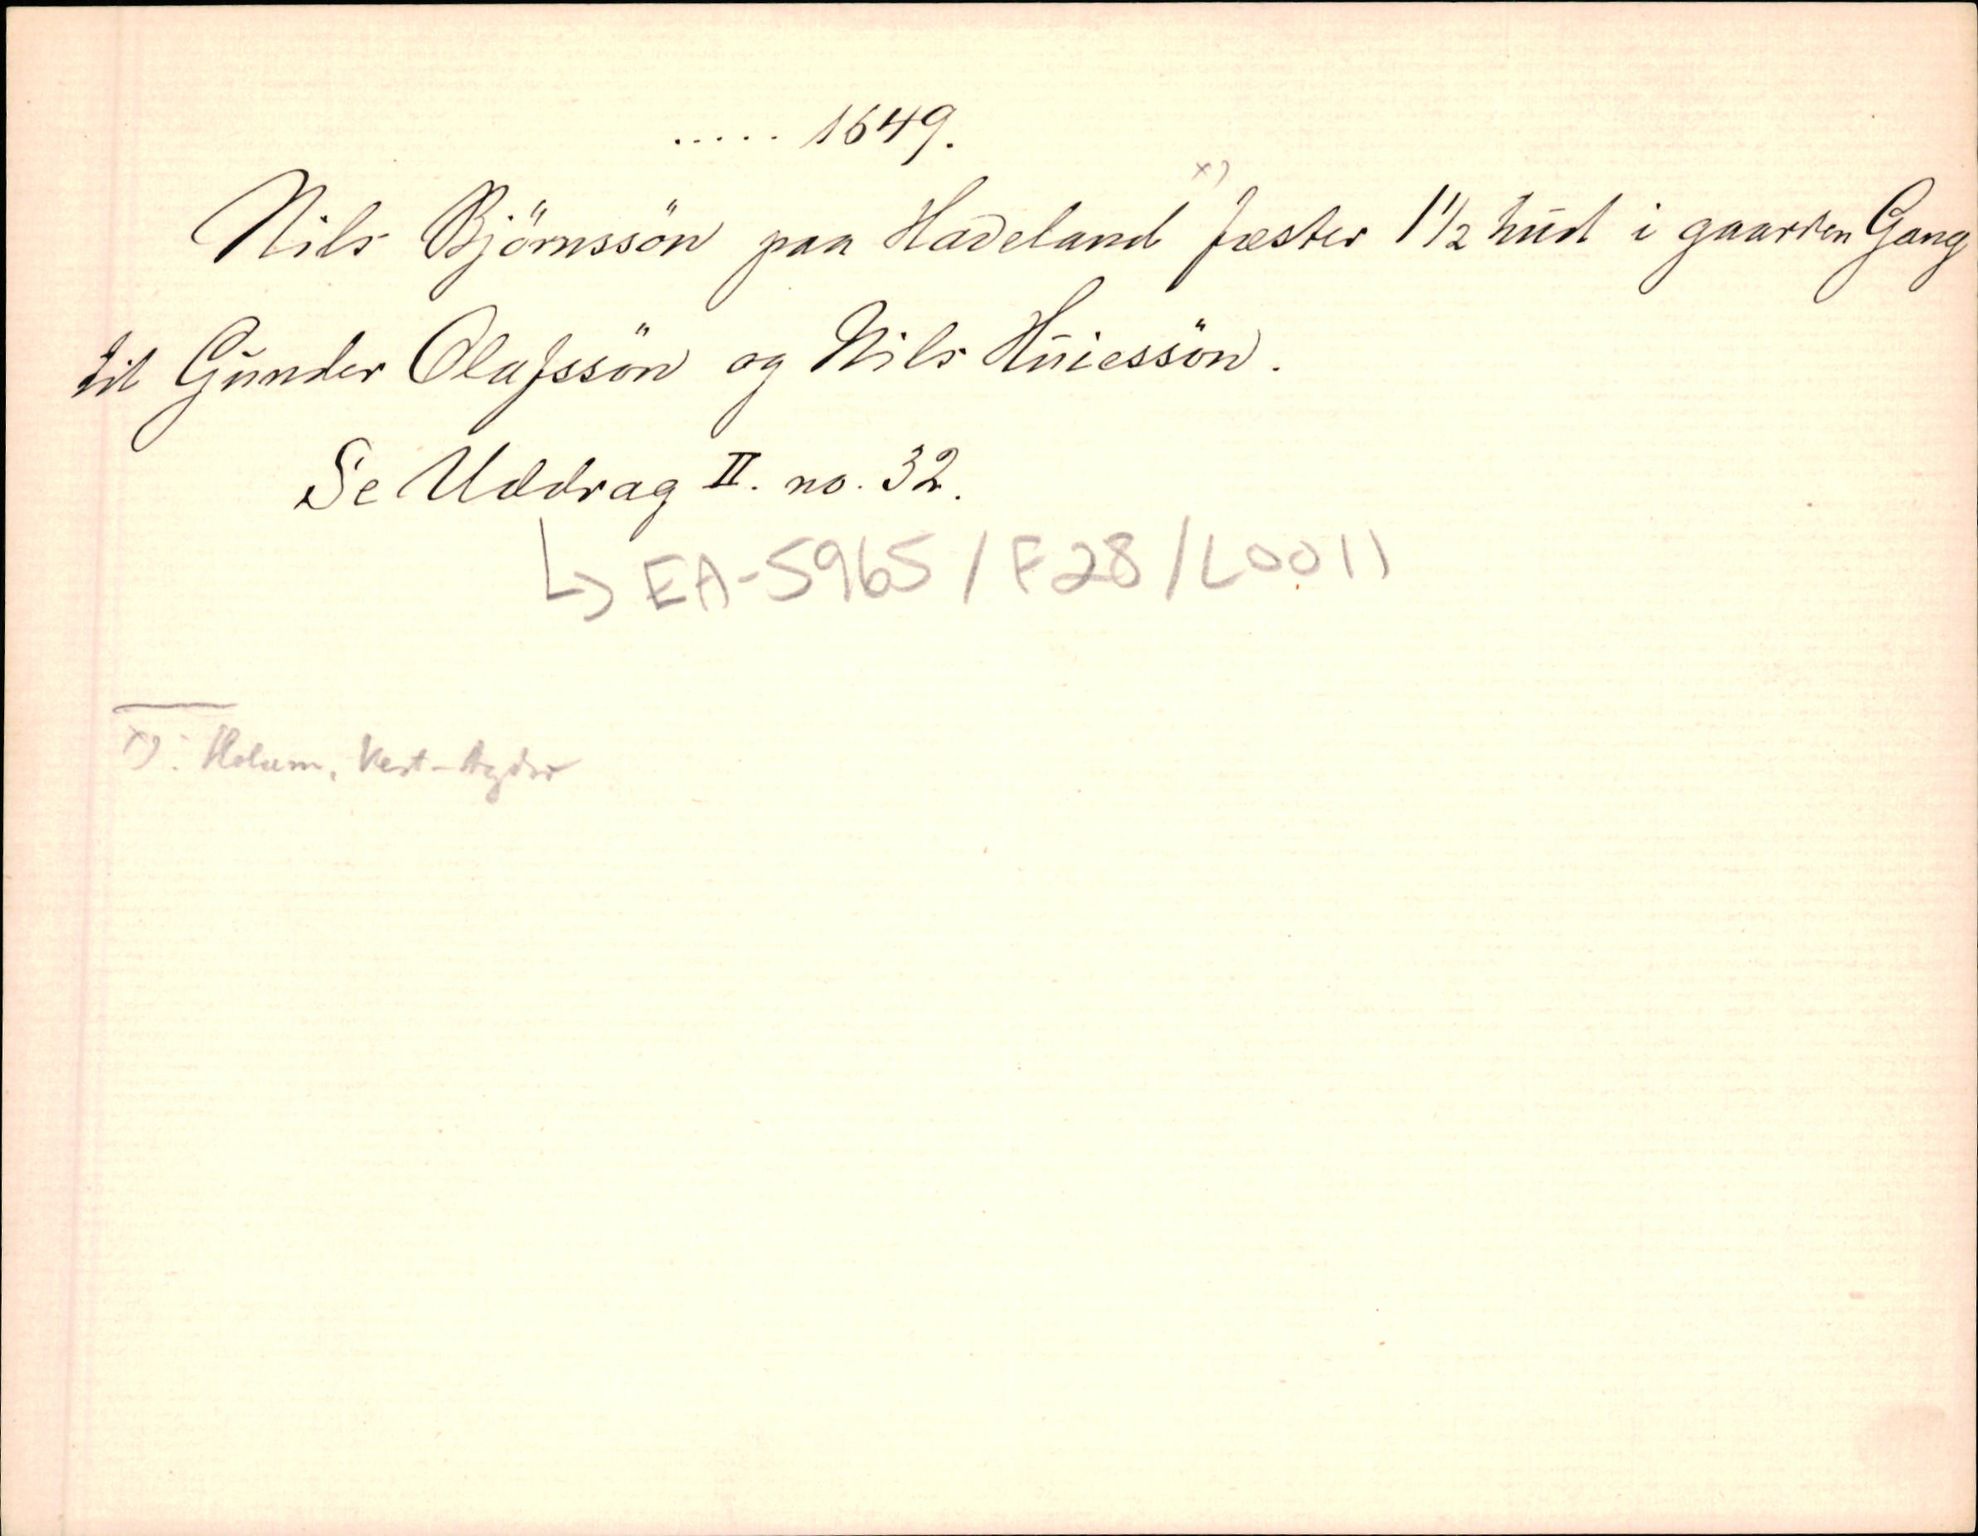 ..... 1649.
Nils Björnssön paa Haaeland x) fæster 1 1/2 hud i gaarden Gang
til Gunder Olafssön og Nils Huiessön.
Se Uddrag II. no. 32.
↳ EA-5965/F28/L0011
x): Holum, Vest-Agder